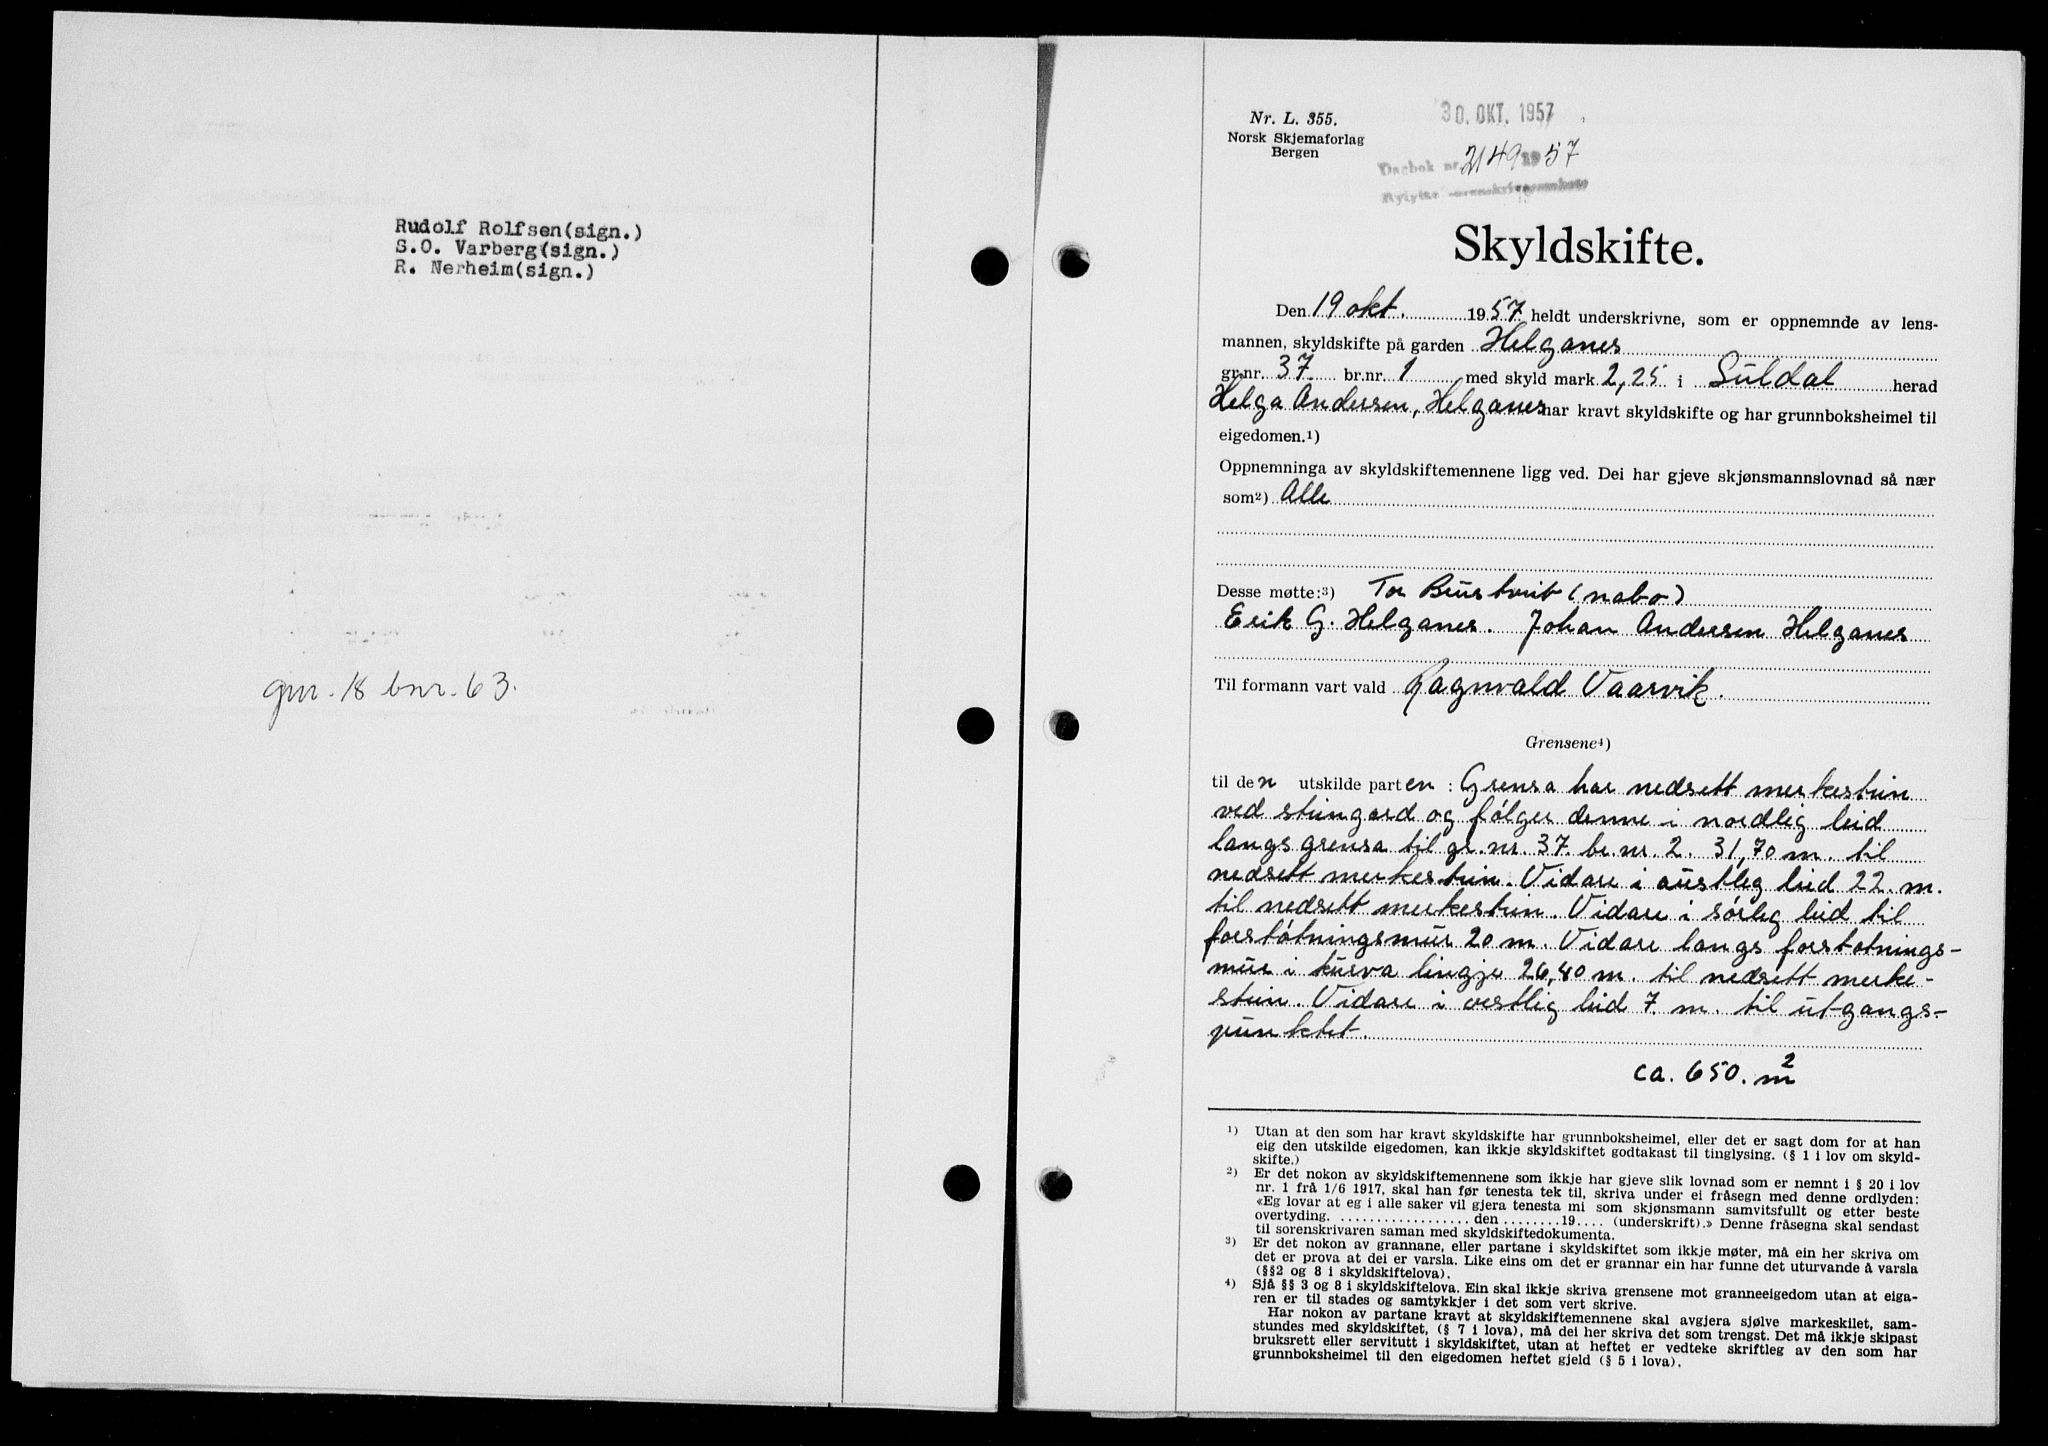 Rudolf Rolfsen(sign.)
S.O. Varberg(sign.)
R. Nerheim(sign.)
gnr. 18 bnr. 63.
Nr. L. 355.
Norsk Skjemaforlag
Bergen
30. OKT. 1957
Dagbok nr. 2149 1957
Skyldskifte.
Den 19 okt. 1957 heldt underskrivne, som er oppnemnde av lens-
mannen, skyldskifte på garden Helganes
gr.nr. 37 br.nr. 1 med skyld mark 2,25 i Suldal herad
Helga Andersen, Helganes har kravt skyldskifte og har grunnboksheimel til
eigedomen.1)
Oppnemninga av skyldskiftemennene ligg ved. Dei har gjeve skjønsmannslovnad så nær
som2) Alle
Desse møtte:3) Tor (nabo)
Erik G. Helganes. Johan Andersen Helganes
Til formann vart vald Ragnvald Vaarvik.
Grensene4)
til den utskilde parten : Grensa har nedsett merkestein
ved steingard og følger denne i nordlig leid
langs grensa til gr. nr. 37 br. nr. 2. 31,70 m. til
nedsett merkestein. Vidare i austleg leid 22. m.
til nedsett merkestein. Vidare i sørleg leid til
forstøtningsmur 20 m. Vidare langs forstøtnings-
mur i kurva lingje 26,40 m. til nedsett merke-
stein. Vidare i vestlig leid 7. m. til utgangs-
punktet.
ca. 650. m2
1) Utan at den som har kravt skyldskifte har grunnboksheimel, eller det er sagt dom for at han
eig den utskilde eigedomen, kan ikkje skyldskiftet godtakast til tinglysing. (§ 1 i lov om skyld-
skifte.)
2) Er det nokon av skyldskiftemennene som ikkje har gjeve slik lovnad som er nemnt i § 20 i lov
nr. 1 frå 1/6 1917, skal han før tenesta tek til, skriva under ei fråsegn med denne ordlyden:
«Eg lovar at eg i alle saker vil gjera tenesta mi som skjønsmann samvitsfullt og etter beste
overtyding. .................. den ........ 19.... (underskrift).» Denne fråsegna skal sendast
til sorenskrivaren saman med skyldskiftedokumenta.
3) Er det nokon av grannane, eller partane i skyldskiftet som ikkje møter, må ein her skriva om
det er prova at dei er varsla. Like eins om det er grannar ein har funne det uturvande å varsla
(§§2 og 8 i skyldskiftelova).
4) Sjå §§ 3 og 8 i skyldskiftelova. Ein skal ikkje skriva grensene mot granneeigedom utan at eiga-
ren er til stades og samtykkjer i det som vert skrive.
Har nokon av partane kravt at skyldskiftemennene skal avgjera sjølve markeskilet, sam-
stundes med skyldskiftet, (§ 7 i lova), må dei her skriva det som trengst. Det må ikkje skipast
bruksrett eller servitutt i skyldskiftet, utan at heftet er vedteke skriftleg av den som har
grunnboksheimel til den eigedomen heftet gjeld (§ 5 i lova).